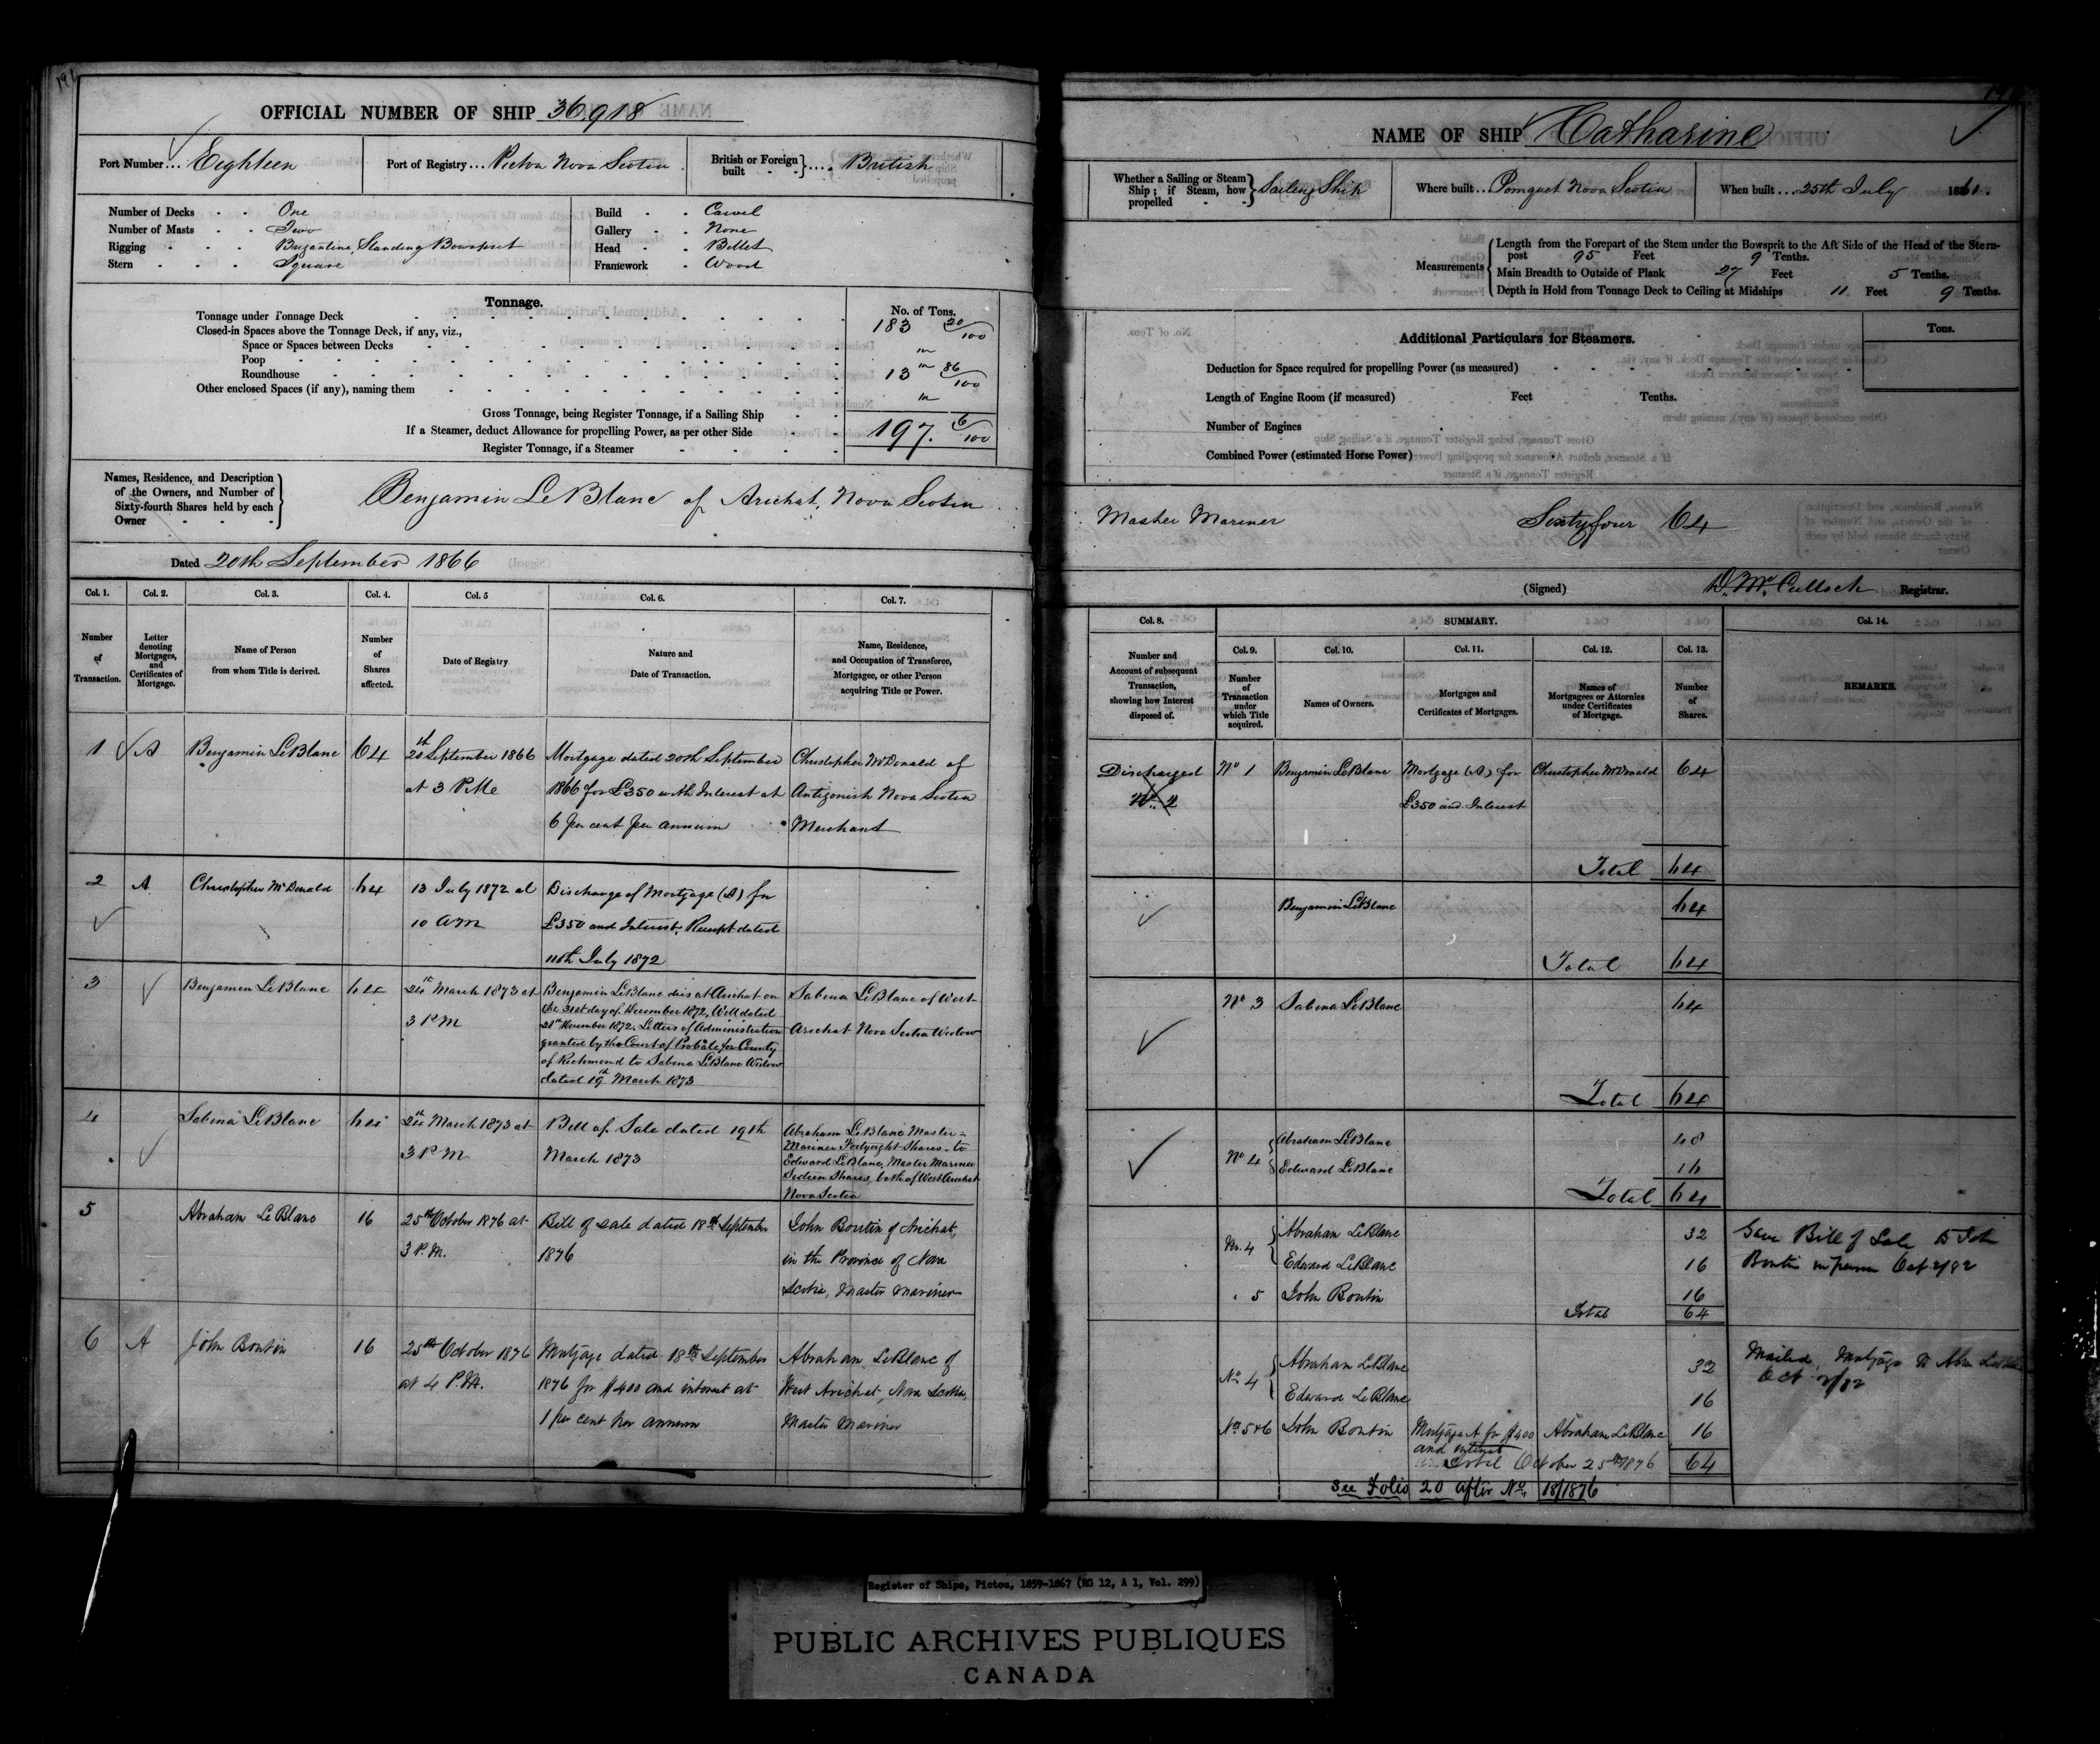 OFFICIAL NUMBER OF SHIP 36,918
Port Number... Eighteen
Port of Registry... Pictou Nova Scotia
British or Foreign built - - } .... British
Number of Decks - - One
Number of Masts - - Two
Rigging - - - Brigantine, Standing Bowsprit
Stern - - - Square
Build - - Carvel
Gallery - - None
Head - - Billet
Framework - Wood
Tonnage.
No. of Tons.
Tonnage under Tonnage Deck 183 20/100
Closed-in Spaces above the Tonnage Deck, if any, viz.,
Space or Spaces between Decks
Poop
Roundhouse 13 86/100
Other enclosed Spaces (if any), naming them
Gross Tonnage, being Register Tonnage, if a Sailing Ship
If a Steamer, deduct Allowance for propelling Power, as per other Side 197. 6/100
Register Tonnage, if a Steamer
Names, Residence, and Description
of the Owners, and Number of
Sixty-fourth Shares held by each
Owner
Benjamin LeBlanc of Arichat, Nova Scotia
Dated 20th September 1866
Col. 1. Col. 2. Col. 3. Col. 4. Col. 5 Col. 6. Col. 7.
Number of Transaction.
Letter denoting Mortgages, and Certificates of Mortgage.
Name of Person from whom Title is derived.
Number of Shares affected.
Date of Registry
Nature and Date of Transaction.
Name, Residence, and Occupation of Transferee, Mortgagee, or other Person acquiring Title or Power.
1 A Benjamin LeBlanc 64
20th September 1866
at 3 P.M.
Mortgage dated 20th September
1866 for £350 with Interest at
6 per cent per annum
Christopher McDonald of
Antigonish Nova Scotia
Merchant
2 A Christopher McDonald 64
13 July 1872 at
10 AM
Discharge of Mortgage (A) for
£350 and Interest, Receipt dated
11th July 1872
3 Benjamin LeBlanc 64
March 1873 at
3 P.M
Benjamin LeBlanc dies at Arichat on
the 31st day of December 1872, Will dated
28th November 1872. Letters of Administration
granted by the Court of Probate for County
of Richmond to Sabina LeBlanc Widow
dated 19th March 1873
Sabina LeBlanc of West
Arichat Nova Scotia Widow
4 Sabina LeBlanc 64
March 1873 at
3 P.M
Bill of Sale dated 19th
March 1873
Abraham LeBlanc Master
Mariner Fortyeight Shares - to
Edward LeBlanc, Master Mariner
Sixteen Shares, both of West Arichat
Nova Scotia
5 Abraham LeBlanc 16
25th October 1876 at
3 P.M.
Bill of sale dated 18th September
1876
John Boutin of Arichat,
in the Province of Nova
Scotia, Master Mariner
6 A John Boutin 16
25th October 1876
at 4 P.M.
Mortgage dated 18th September
1876 for $400 and interest at
1 per cent per annum
Abraham LeBlanc of
West Arichat, Nova Scotia,
Master Mariner
NAME OF SHIP Catharine
Whether a Sailing or Steam Ship; if Steam, how propelled - - } Sailing Ship
Where built... Pomquet Nova Scotia
When built... 25th July 1861.
Measurements
Length from the Forepart of the Stem under the Bowsprit to the Aft Side of the Head of the Stern-
post 95 Feet 9 Tenths.
Main Breadth to Outside of Plank 27 Feet 5 Tenths.
Depth in Hold from Tonnage Deck to Ceiling at Midships 11 Feet 9 Tenths.
Additional Particulars for Steamers.
Tons.
Deduction for Space required for propelling Power (as measured)
Length of Engine Room (if measured) Feet Tenths.
Number of Engines
Combined Power (estimated Horse Power)
Master Mariner Sixtyfour 64
(Signed) D. McCulloch Registrar.
Col. 8. SUMMARY. Col. 14.
Col. 9. Col. 10. Col. 11. Col. 12. Col. 13.
Number and Account of subsequent Transaction, showing how Interest disposed of.
Number of Transaction under which Title acquired.
Names of Owners.
Mortgages and Certificates of Mortgages.
Names of Mortgagees or Attornies under Certificates of Mortgage.
Number of Shares.
REMARKS.
Discharged
No. 2
No 1 Benjamin LeBlanc Mortgage (A) for Christopher McDonald 64
£350 and Interest
Total 64
Benjamin LeBlanc 64
Total 64
No 3 Sabina LeBlanc 64
Total 64
No 4 { Abraham LeBlanc 48
Edward LeBlanc 16
Total 64
No. 4 { Abraham LeBlanc 32
Edward LeBlanc 16
" 5 John Boutin 16
Total 64
Gave Bill of Sale to
Boutin in person Oct 2/82
No 4 { Abraham LeBlanc 32
Edward LeBlanc 16
No 5&6 John Boutin Mortgage A for $400 Abraham LeBlanc 16
and interest
Total October 25th 1876 64
Mailed Mortgage to
Oct 2/82
See Folio 20 after No. 18/1876
Register of Ships, Pictou, 1859-1867 (RG 12, A 1, Vol. 299)
PUBLIC ARCHIVES PUBLIQUES
CANADA